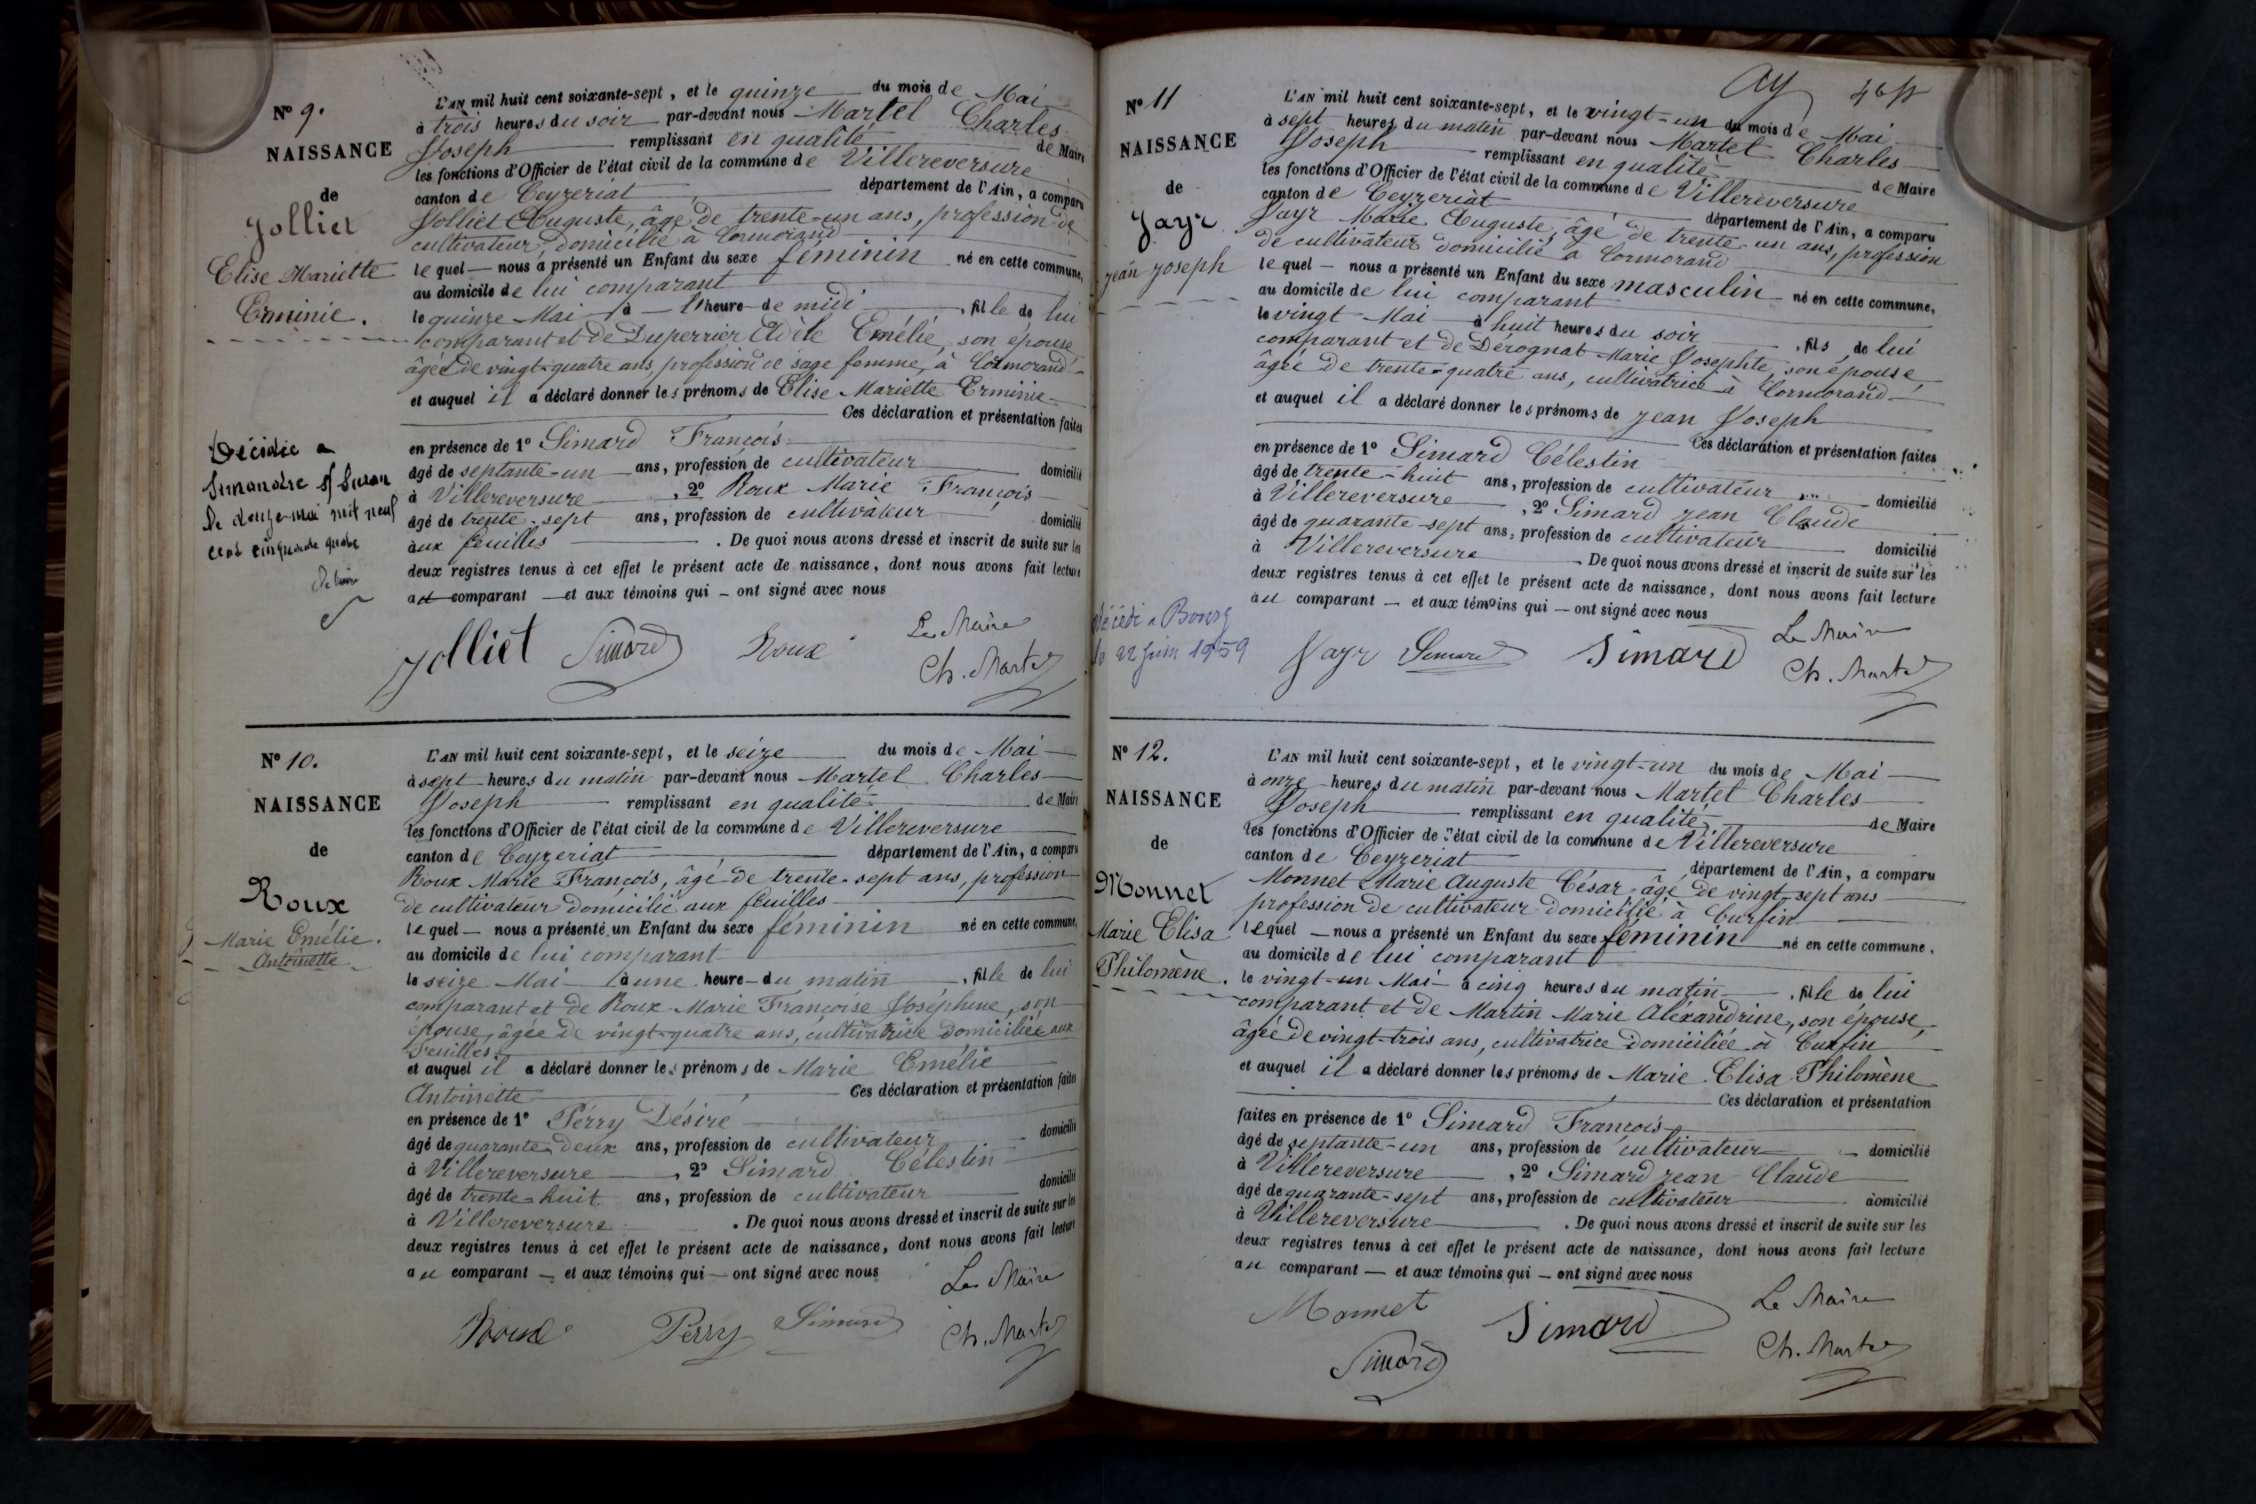 N° 9.
NAISSANCE
de
Jolliet
Elise Mariette
Erminie.
L'AN mil huit cent soixante-sept, et le quinze du mois de Mai
à trois heures du soir par-devant nous Martel Charles
Joseph remplissant en qualité de Maire
les fonctions d'Officier de l'état civil de la commune de Villereversure
canton de Ceyzeriat département de l'Ain, a comparu
Jolliet Auguste, âgé de trente-un ans, profession de
cultivateur, domicilié à Cormorand
lequel nous a présenté un Enfant du sexe féminin né en cette commune,
au domicile de lui comparant
le quinze Mai à l'heure de midi, fille de lui
comparant et de Duperrier Adèle Emélie, son épouse
âgée de vingt-quatre ans, profession de sage femme, à Cormorand
et auquel il a déclaré donner les prénoms de Elise Mariette Erminie
Ces déclaration et présentation faites
en présence de 1° Simard François
âgé de septante-un ans, profession de cultivateur domicilié
à Villereversure, 2° Roux Marie François
âgé de trente-sept ans, profession de cultivateur domicilié
aux feuilles. De quoi nous avons dressé et inscrit de suite sur les
deux registres tenus à cet effet le présent acte de naissance, dont nous avons fait lecture
au comparant et aux témoins qui ont signé avec nous
Décédée a
Simandre s/ Suran
le douze mai mil neuf
cent cinquante quatre
Le Maire
Jolliet Simard Roux Ch. Martel
N° 10.
NAISSANCE
de
Roux
Marie Emélie.
Antoinette
L'AN mil huit cent soixante-sept, et le seize du mois de Mai
à sept heures du matin par-devant nous Martel Charles
Joseph remplissant en qualité de Maire
les fonctions d'Officier de l'état civil de la commune de Villereversure
canton de Ceyzeriat département de l'Ain, a comparu
Roux Marie François, âgé de trente-sept ans, profession
de cultivateur domicilié aux feuilles
lequel nous a présenté un Enfant du sexe féminin né en cette commune,
au domicile de lui comparant
le seize Mai à une heure du matin, fille de lui
comparant et de Roux Marie Françoise Joséphine, son
épouse, âgée de vingt-quatre ans, cultivatrice domiciliée aux
feuilles
et auquel il a déclaré donner les prénoms de Marie Emélie
Antoinette Ces déclaration et présentation faites
en présence de 1° Perry Désiré
âgé de quarante-deux ans, profession de cultivateur domicilié
à Villereversure, 2° Simard Célestin
âgé de trente-huit ans, profession de cultivateur domicilié
à Villereversure. De quoi nous avons dressé et inscrit de suite sur les
deux registres tenus à cet effet le présent acte de naissance, dont nous avons fait lecture
au comparant et aux témoins qui ont signé avec nous
Le Maire
Roux Perry Simard Ch. Martel
N° 11
NAISSANCE
de
Jayr
jean joseph
L'AN mil huit cent soixante-sept, et le vingt-un du mois de Mai
à sept heures du matin par-devant nous Martel Charles
Joseph remplissant en qualité de Maire
les fonctions d'Officier de l'état civil de la commune de Villereversure
canton de Ceyzeriat département de l'Ain, a comparu
Jayr Marie Auguste, âgé de trente-un ans, profession
de cultivateur domicilié à Cormorand
lequel nous a présenté un Enfant du sexe masculin né en cette commune,
au domicile de lui comparant
le vingt Mai à huit heures du soir, fils de lui
comparant et de Dérognat Marie Josephte, son épouse,
âgée de trente-quatre ans, cultivatrice à Cormorand
et auquel il a déclaré donner les prénoms de jean Joseph
Ces déclaration et présentation faites
en présence de 1° Simard Célestin
âgé de trente-huit ans, profession de cultivateur domicilié
à Villereversure, 2° Simard jean Claude
âgé de quarante-sept ans, profession de cultivateur domicilié
à Villereversure. De quoi nous avons dressé et inscrit de suite sur les
deux registres tenus à cet effet le présent acte de naissance, dont nous avons fait lecture
au comparant et aux témoins qui ont signé avec nous
décédé a Bourg
le 22 juin 1959
Le Maire
Jayr Simard Simard Ch. Martel
N° 12.
NAISSANCE
de
Monnet
Marie Elisa
Philomène.
L'AN mil huit cent soixante-sept, et le vingt-un du mois de Mai
à onze heures du matin par-devant nous Martel Charles
Joseph remplissant en qualité de Maire
les fonctions d'Officier de l'état civil de la commune de Villereversure
canton de Ceyzeriat département de l'Ain, a comparu
Monnet Marie Auguste César âgé de vingt-sept ans
profession de cultivateur domicilié à Curfin
lequel nous a présenté un Enfant du sexe féminin né en cette commune.
au domicile de lui comparant
le vingt-un Mai à cinq heures du matin, fille de lui
comparant et de Martin Marie Aléxandrine, son épouse,
âgée de vingt-trois ans, cultivatrice domiciliée à Curfin
et auquel il a déclaré donner les prénoms de Marie Elisa Philomène
Ces déclaration et présentation
faites en présence de 1° Simard François
âgé de septante-un ans, profession de cultivateur domicilié
à Villereversure, 2° Simard jean Claude
âgé de quarante-sept ans, profession de cultivateur domicilié
à Villereversure. De quoi nous avons dressé et inscrit de suite sur les
deux registres tenus à cet effet le présent acte de naissance, dont nous avons fait lecture
au comparant et aux témoins qui ont signé avec nous
Le Maire
Monnet Simard Ch. Martel
Simard